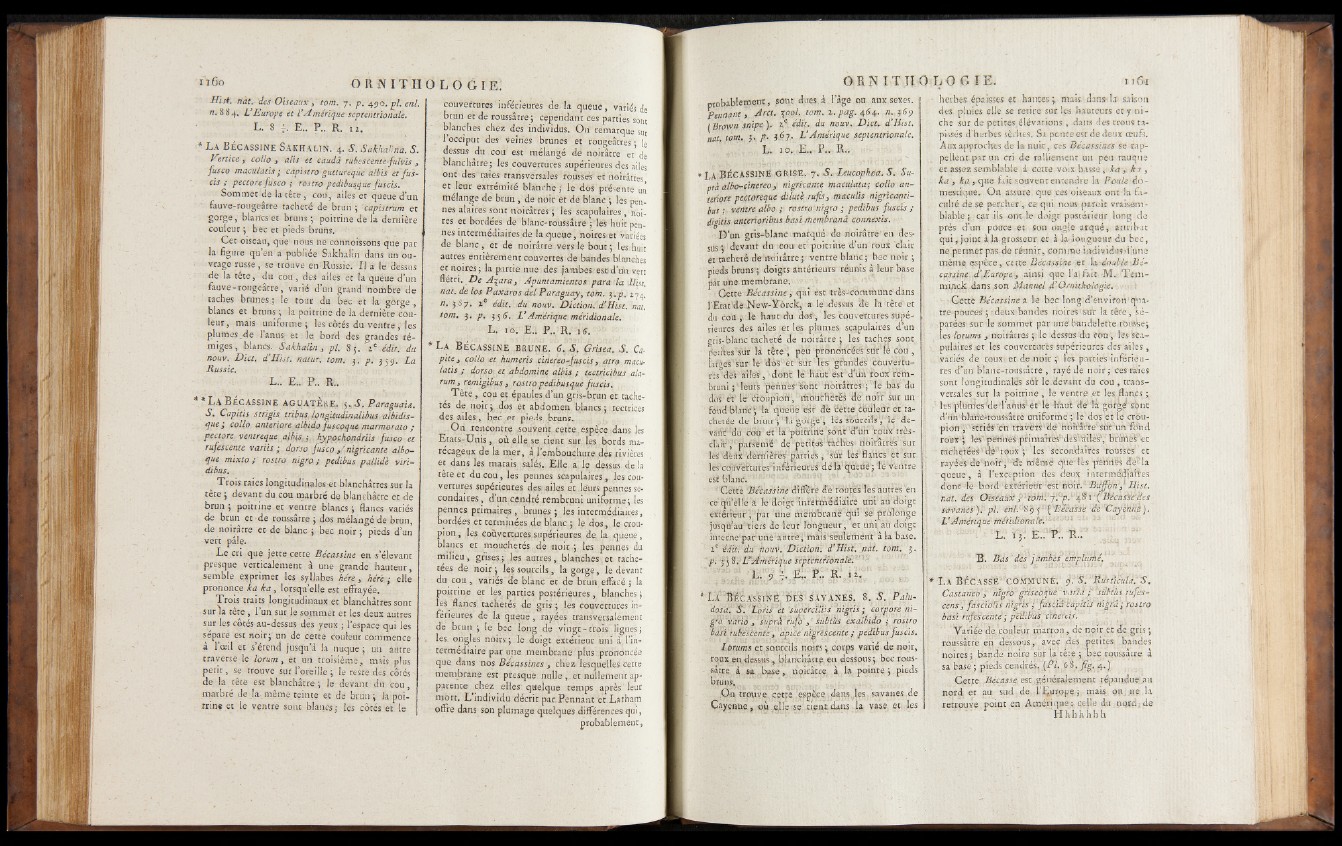 1160 ORNITHOLOGIE.
Hist. nat. des Oiseaux, tom. 7. p. 490. pl. enl.
n. 884. L'Europe et l'Amérique septentrionale.
L. 8 ½. E.. P.. R. 12.
* LA BÉCASSINE SAKHALIN. 4. S. Sakhalina. S.
Vertice, collo, alis et caudâ rubescente-fulvis,
fusco maculatis; capistro guttureque albis et fus-
cis; pectore fusco; rostro pedibusque fuscis.
Sommet de la tête, cou, ailes et queue d'un
fauve-rougeâtre tacheté de brun; capistrum et
gorge, blancs et bruns; poitrine de la dernière
couleur; bec et pieds bruns.
Cet oiseau, que nous ne connoissons que par
la figure qu'en a publiée Sakhalin dans un ou-
vrage russe, se trouve en Russie. Il a le dessus
de la tête, du cou, des ailes et la queue d'un
fauve-rougeâtre, varié d'un grand nombre de
taches brunes; le tour du bec et la gorge,
blancs et bruns; la poitrine de la dernière cou-
leur, mais uniforme; les côtés du ventre, les
plumes de l'anus et le bord des grandes ré-
miges, blancs. Sakhalin, pl. 85. 2e édit. du
nouv. Dict. d'Hist. natur. tom. 3. p. 359. La
Russie.
L.. E.. P.. R..
** LA BÉCASSINE AGUATÈRE. 5. S. Paraguaia.
S. Capitis strigis tribus longitudinalibus albidis-
que; collo anteriore albido fuscoque marmorato;
pectore ventreque albis; hypochondriis fusco et
rufescente variis; dorso fusco, nigricante albo-
que mixto; rostro nigro; pedibus pallidè viri-
dibus.
Trois raies longitudinales et blanchâtres sur la
tête; devant du cou marbré de blanchâtre et de
brun; poitrine et ventre blancs; flancs variés
de brun et de roussâtre; dos mélangé de brun,
de noirâtre et de blanc; bec noir; pieds d'un
vert pâle.
Le cri que jette cette Bécassine en s'élevant
presque verticalement à une grande hauteur,
semble exprimer les syllabes hére, hére; elle
prononce ka ka, lorsqu'elle est effrayée.
Trois traits longitudinaux et blanchâtres sont
sur la tête, l'un sur le sommet et les deux autres
sur les côtés au-dessus des yeux; l'espace qui les
sépare est noir; un de cette couleur commence
à l'œil et s'étend jusqu'à la nuque; un autre
traverse le lorum, et un troisième, mais plus
petit, se trouve sur l'oreille; le reste des côtés
de la tête est blanchâtre; le devant du cou,
marbré de la même teinte et de brun; la poi-
trine et le ventre sont blancs; les côtés et le
couvertures inférieures de la queue, variés de
brun et de roussâtre; cependant ces parties sont
blanches chez des individus. On remarque sur
l'occiput des veines brunes et rougeâtres; le
dessus du cou est mélangé de noirâtre et de
blanchâtre; les couvertures supérieures des ailes
ont des raies transversales rousses et noirâtres,
et leur extrémité blanche; le dos présente un
mélange de brun, de noir et de blanc; les pen-
nes alaires sont noirâtres; les scapulaires, noi-
res et bordées de blanc-roussâtre; les huit pen-
nes intermédiaires de la queue, noires et variées
de blanc, et de noirâtre vers le bout; les huit
autres entièrement couvertes de bandes blanches
et noires; la partie nue des jambes est d'un vert
flétri. De Azara, Apuntamientos para la Hist.
nat. de los Paxaros del Paraguay, tom. 3. p. 274.
n. 387. 2e édit. du nouv. Diction. d'Hist. nat.
tom. 3. p. 356. L'Amérique méridionale.
L. 10. E.. P.. R. 16.
* LA BÉCASSINE BRUNE. 6. S. Grisea. S. Ca-
pite, collo et humeris cinereo-fuscis, atro macu-
latis; dorso et abdomine albis; tectricibus ala-
rum, remigibus, rostro pedibusque fuscis.
Tête, cou et épaules d'un gris-brun et tache-
tés de noir; dos et abdomen blancs; tectrices
des ailes, bec et pieds bruns.
On rencontre souvent cette espèce dans les
Etats-Unis, où elle se tient sur les bords ma-
récageux de la mer, à l'embouchure des rivières
et dans les marais salés. Elle a le dessus de la
tête et du cou, les pennes scapulaires, les cou-
vertures supérieures des ailes et leurs pennes se-
condaires, d'un cendré rembruni uniforme; les
pennes primaires, brunes; les intermédiaires,
bordées et terminées de blanc; le dos, le crou-
pion, les couvertures supérieures de la queue,
blancs et mouchetés de noir; les pennes du
milieu, grises; les autres, blanches et tache-
tées de noir; les sourcils, la gorge, le devant
du cou, variés de blanc et de brun effacé; la
poitrine et les parties postérieures, blanches;
les flancs tachetés de gris; les couvertures in-
férieures de la queue, rayées transversalement
de brun; le bec long de vingt-trois lignes;
les ongles noirs; le doigt extérieur uni à l'in-
termédiaire par une membrane plus prononcée
que dans nos Bécassines, chez lesquelles cette
membrane est presque nulle, et nullement ap-
parente chez elles quelque temps après leur
mort. L'individu décrit par Pennant et Latham
offre dans son plumage quelques différences qui,
probablement,
ORNITHOLOGIE. 1161
probablement, sont dues à l'âge ou aux sexes.
Pennant, Arct. zool. tom. 2. pag. 464. n. 369
(Brown snipe). 2e édit. du nouv. Dict. d'Hist.
nat. tom. 3. p. 367. L'Amérique septentrionale.
L. 10. E.. P.. R..
* LA BÉCASSINE GRISE. 7. S. Leucophæa. S. Su-
prà albo-cinereo, nigricante maculata; collo an-
teriore pectoreque dilutè rufis, maculis nigricanti-
bus; ventre albo; rostro nigro; pedibus fuscis;
digitis anterioribus basi membranâ connexis.
D'un gris-blanc marqué de noirâtre en des-
sus; devant du cou et poitrine d'un roux clair
et tacheté de noirâtre; ventre blanc; bec noir;
pieds bruns; doigts antérieurs réunis à leur base
par une membrane.
Cette Bécassine, qui est très-commune dans
l'Etat de New-Yorck, a le dessus de la tête et
du cou, le haut du dos, les couvertures supé-
rieures des ailes et les plumes scapulaires d'un
gris-blanc tacheté de noirâtre; les taches sont
petites sur la tête, peu prononcées sur le cou,
larges sur le dos et sur les grandes couvertu-
res des ailes, dont le haut est d'un roux rem-
bruni; leurs pennes sont noirâtres; le bas du
dos et le croupion, mouchetés de noir sur un
fond blanc; la queue est de cette couleur et ta-
chetée de brun; la gorge, les sourcils, le de-
vant du cou et la poitrine sont d'un roux très-
clair, parsemé de petites taches noirâtres sur
les deux dernières parties, sur les flancs et sur
les couvertures inférieures de la queue; le ventre
est blanc.
Cette Bécassine diffère de toutes les autres en
ce qu'elle a le doigt intermédiaire uni au doigt
extérieur, par une membrane qui se prolonge
jusqu'au tiers de leur longueur, et uni au doigt
interne par une autre, mais seulement à la base.
2e édit. du nouv. Diction. d'Hist. nat. tom. 3.
p. 358. L'Amérique septentrionale.
L. 9 ½. E.. P.. R. 12.
* LA BÉCASSINE DES SAVANES. 8. S. Palu-
dosa. S. Loris et superciliis nigris; corpore ni-
gro vario, suprà rufo, subtùs exalbido; rostro
basi rubescente, apice nigrescente; pedibus fuscis.
Lorums et sourcils noirs; corps varié de noir,
roux en dessus, blanchâtre en dessous; bec rous-
sâtre à sa base, noirâtre à la pointe; pieds
bruns.
On trouve cette espèce dans les savanes de
Cayenne, où elle se tient dans la vase et les
herbes épaisses et hautes; mais dans la saison
des pluies elle se retire sur les hauteurs et y ni-
che sur de petites élévations, dans des trous ta-
pissés d'herbes sèches. Sa ponte est de deux œufs.
Aux approches de la nuit, ces Bécassines se rap-
pellent par un cri de ralliement un peu rauque
et assez semblable à cette voix basse, ka, ka,
ka, ka, que fait souvent entendre la Poule do-
mestique. On assure que ces oiseaux ont la fa-
culté de se percher, ce qui nous paroît vraisem-
blable; car ils ont le doigt postérieur long de
près d'un pouce et son ongle arqué, attribut
qui, joint à la grosseur et à la longueur du bec,
ne permet pas de réunir, comme individus d'une
même espèce, cette Bécassine et la double Bé-
cassine d'Europe, ainsi que l'a fait M. Tem-
minck dans son Manuel d'Ornithologie.
Cette Bécassine a le bec long d'environ qua-
tre pouces; deux bandes noires sur la tête, sé-
parées sur le sommet par une bandelette rousse;
les lorums, noirâtres; le dessus du cou, les sca-
pulaires et les couvertures supérieures des ailes,
variés de roux et de noir; les parties inférieu-
res d'un blanc-roussâtre, rayé de noir; ces raies
sont longitudinales sur le devant du cou, trans-
versales sur la poitrine, le ventre et les flancs;
les plumes de l'anus et le haut de la gorge sont
d'un blanc-roussâtre uniforme; le dos et le crou-
pion, striés en travers de noirâtre sur un fond
roux; les pennes primaires des ailes, brunes et
tachetées de roux; les secondaires rousses et
rayées de noir, de même que les pennes de la
queue, à l'exception des deux intermédiaires
dont le bord extérieur est noir. Buffon, Hist.
nat. des Oiseaux, tom. 7. p. 481 (Bécasse des
savanes). pl. enl. 895 (Bécasse de Cayenne).
L'Amérique méridionale.
L. 13. E.. P.. R..
B. Bas des jambes emplumé.
* LA BÉCASSE COMMUNE. 9. S. Rusticula. S.
Castaneo, nigro griseoque varia; subtùs rufes-
cens, fasciolis nigris; fasciâ capitis nigrâ; rostro
basi rufescente; pedibus cinereis.
Variée de couleur marron, de noir et de gris;
roussâtre en dessous, avec des petites bandes
noires; bande noire sur la tête; bec roussâtre à
sa base; pieds cendrés. (Pl. 68. fig. 4.)
Cette Bécasse est généralement répandue au
nord et au sud de l'Europe, mais on ne la
retrouve point en Amérique; celle du nord de
Hhhhhhh